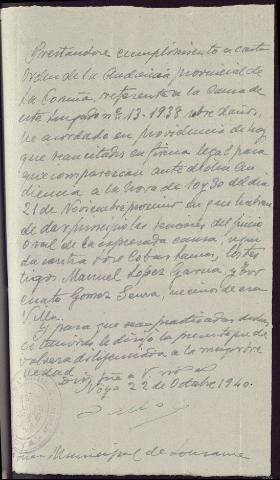 Prestandose cumplimiento a carta
orden de la Audiencia provincial de
La Coruña, referente a la causa de
este Juzgado nº 13-1938 sobre daños,
he acordado en providencia de hoy
que sean citados en forma legal para
que comparezcan ante dicha Au
diencia a la hora de 10 y 30 del dia
21 de Noviembre proximo en que habran
de dar principio las sesiones del juicio
oral de la expresada causa, segui
da contra Jose Lobas Ramos, los tes
tigos, Manuel Lopez Garcia, y
Gomez, vecinos de esa
Villa.
Y para que sean practicadas dichas
citaciones le dirijo la presente que de
volvera diligenciada a la mayor bre
vedad.
Dios gue a V. m. as
Noya 22 de Octubre 1940.
Juez Municipal de Lousame